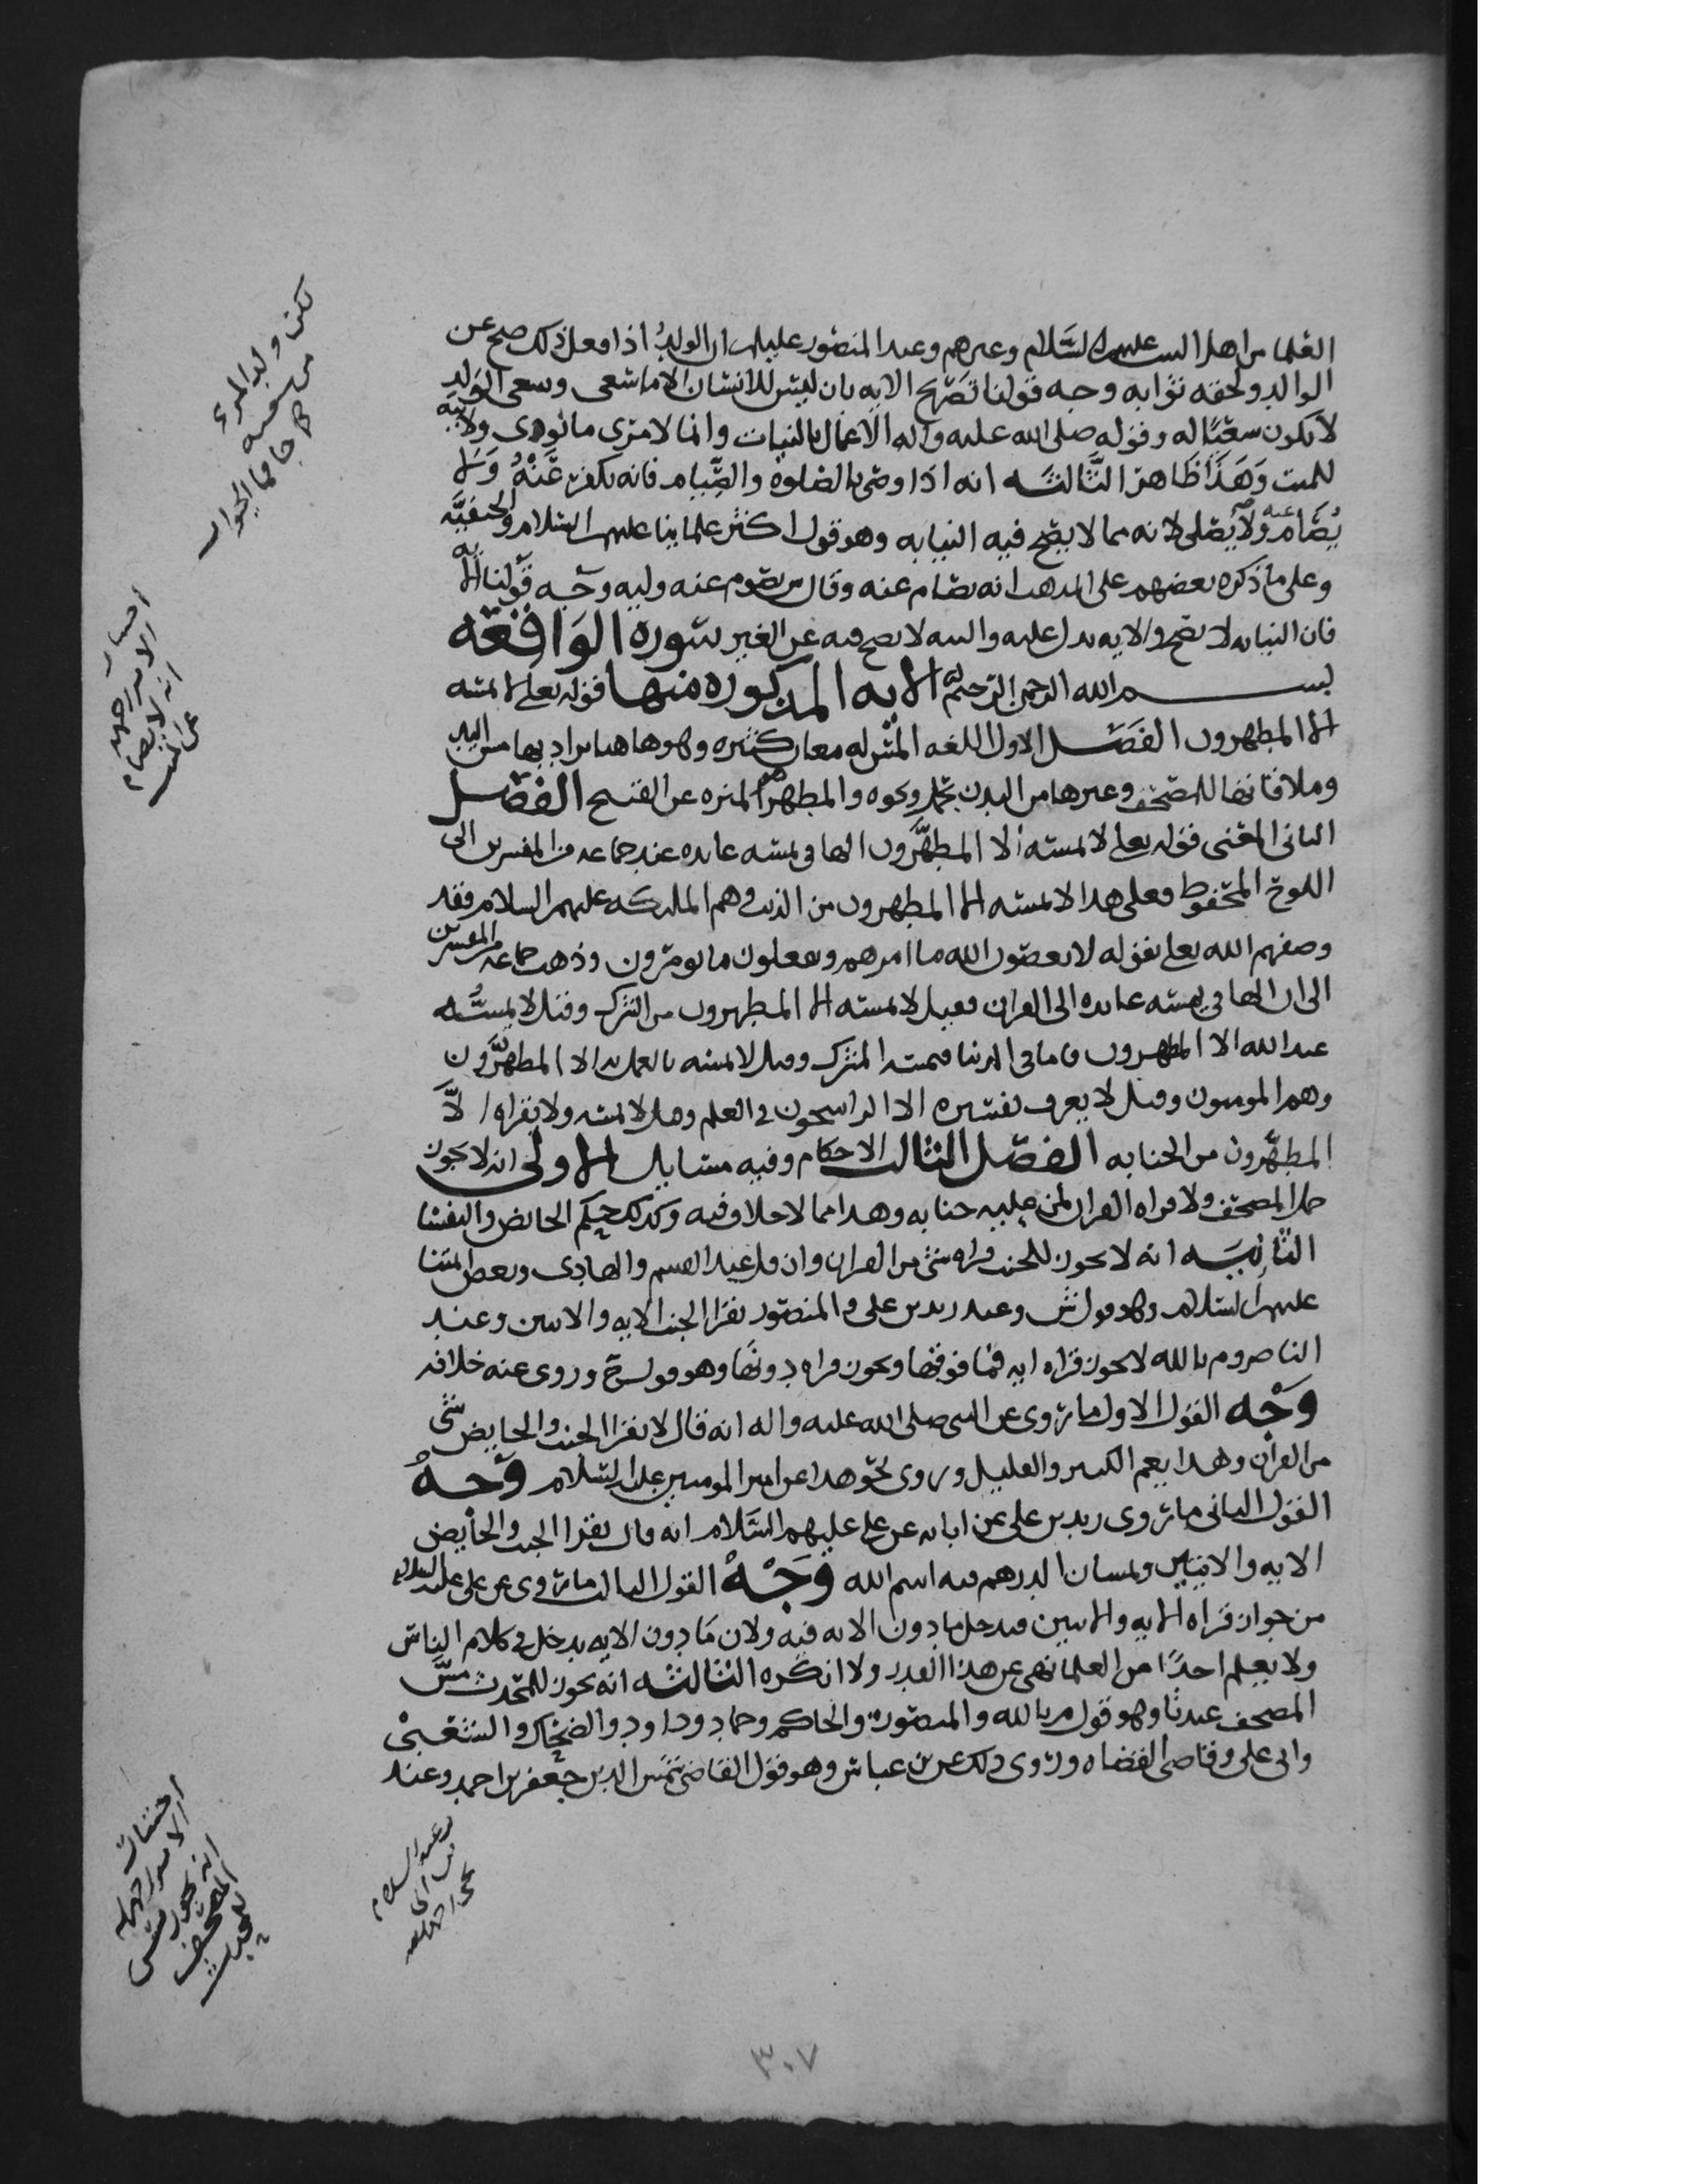 العلما من اهل البيت عليهم السَّلام وغيرهم وعند المنصور عليلم ان الولدُ اذا فعل ذلك صح عن
الوالد ولحقه ثوابه وجه قولنا تصريح الايه بان ليس للانسان الا ما سعى وسعى الولد
لا يكون سعيًا له وقوله صلى الله عليه واله الاعمال بالنيات وانما لامرئ ما نوى ولا نيه
للميت وَهَذَا ظاهر الثَّالثَه انه اذا وصى بالصلوة والصِّيام فانه يكفر عَنْهُ وَلا
يُصَام عنه ولا يُصَلى لانه مما لا يصح فيه النيابه وهو قول اكثر علماينا عليهم السلام والحنفيَّه
وعلى ما ذكره بعضهم على المذهب انه يصام عنه وقال يصوم عنه وليه وجه قولنا الايه
فان النيابه لا تصح والايه تدل عليه والنيه لا تصح فيه عن الغير سورة الوَاقعَه
بسم الله الرحمن الرحيم الايه المذكوره منها قوله تعلى لا يمسه
الا المطهرون الفَصْل الاول اللغه المَسّ له معان كثيره وهو هاهنا يراد بها مس اليد
وملاقاتها للمصحف وغيرها من البدن بحمله ونحوه والمطهر المنزه عن القبيح الفصْل
الثانى المعْنى قوله تعلى لا يمسه الا المطهَّرون الها فى يمسه عايده عند جماعه من المفسرين الى
اللوح المحفوظ فعلى هذا لا يمسه الا المطهرون من الذنب وهم المليكه عليهم السلام فقد
وصفهم الله تعلى بقوله لا يعصون الله ما امرهم ويفعلون ما يومرون وذهب جماعه من المفسرين
الى ان الها فى يمسه عايده الى القران فقيل لا يمسه الا المطهرون من الشرك وقيل لا يمسُّه
عند الله الا المطهرون فاما فى الدنيا فيمسه المشرك وقيل لا يمسه بالعمل به الا المطهرَّون
وهم المومنون وقيل لا يعرف تفسيره الا الراسخون فى العلم وقيل لا يمسه ولا يقراه الَّا
المطهَّرون من الجنابه الفصْل الثالث الاحكام وفيه مسايل الاولى انه لا يجوز
حمل المصحف ولا قراه القران لمن عليه جنابه وهذا مما لا خلاف فيه وكذلك حكم الحايض والنفسا
الثَّانيَه انه لا يجوز للجنب قراه شى من القران وان قل عند القسم والهادى وبعض
عليهم السلام وهو قول ش وعند زيد بن على والمنصور يقرا الجنب الايه والايتين وعند
الناصر وم بالله لا يجوز قراه ايه فما فوقها ويجوز قراه دونها وهو قول ح وروى عنه خلافه
وَجْه القول الاول ما روى عن النبى صلى الله عليه واله انه قال لا يقرا الجنب والحايض شى
من القرآن وهذا يعم الكثير والقليل وروى نحو هذا عن امير المومنين عليه السلام وَجهُ
القول الثانى ما روى زيد بن على عن ابايه عن على عليهم السَّلام انه قال يقرا الجنب والحايض
الايه والايتين ويمسان الدرهم فيه اسم الله وَجْهُ القول الثالث ما روى عن على عليه السلام
من جواز قراه الايه والايتين فيدخل ما دون الايه فيه ولان ما دون الايه يدخل فى كلام الناس
ولا يعلم احدًا من العلما نهى عن هذا القدر ولا انكره الثالثه انه يجوز للمحدث مسَّ
المصحف عندنا وهو قول م بالله والمنصور والحاكم وحماد وداود والضحاك والشعبى
وابى على وقاضى القضاه وروى ذلك عن بن عباس وهو قول القاضى شمس الدين جعفر بن احمد وعند
لكن ولد المرء
من سعيه
فما الجواب
احساب
الامير رحمه
انه لا يصام
عن الميت
اختيار
الامير رحمه
انه يجوز مس
المصحف
للمحدث
عبد السلام
بن ابى
يحيى
٣٠٧